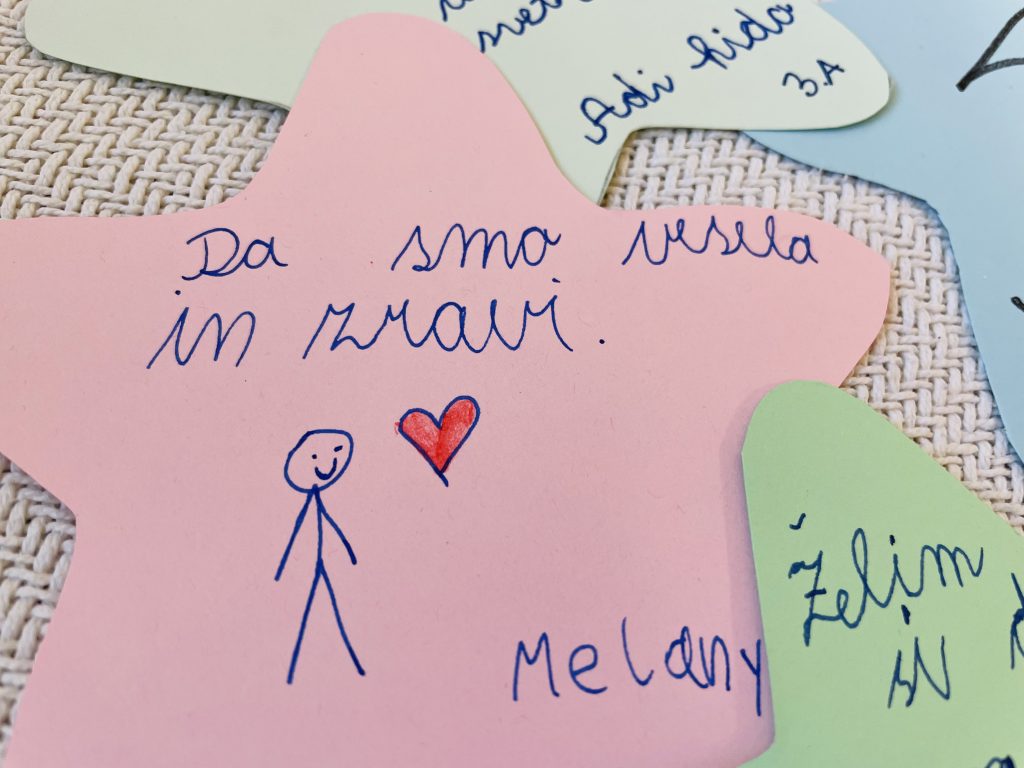 svet
Adi hida
3.A
Da smo vesela
in zravi.
Melany
Želim
in